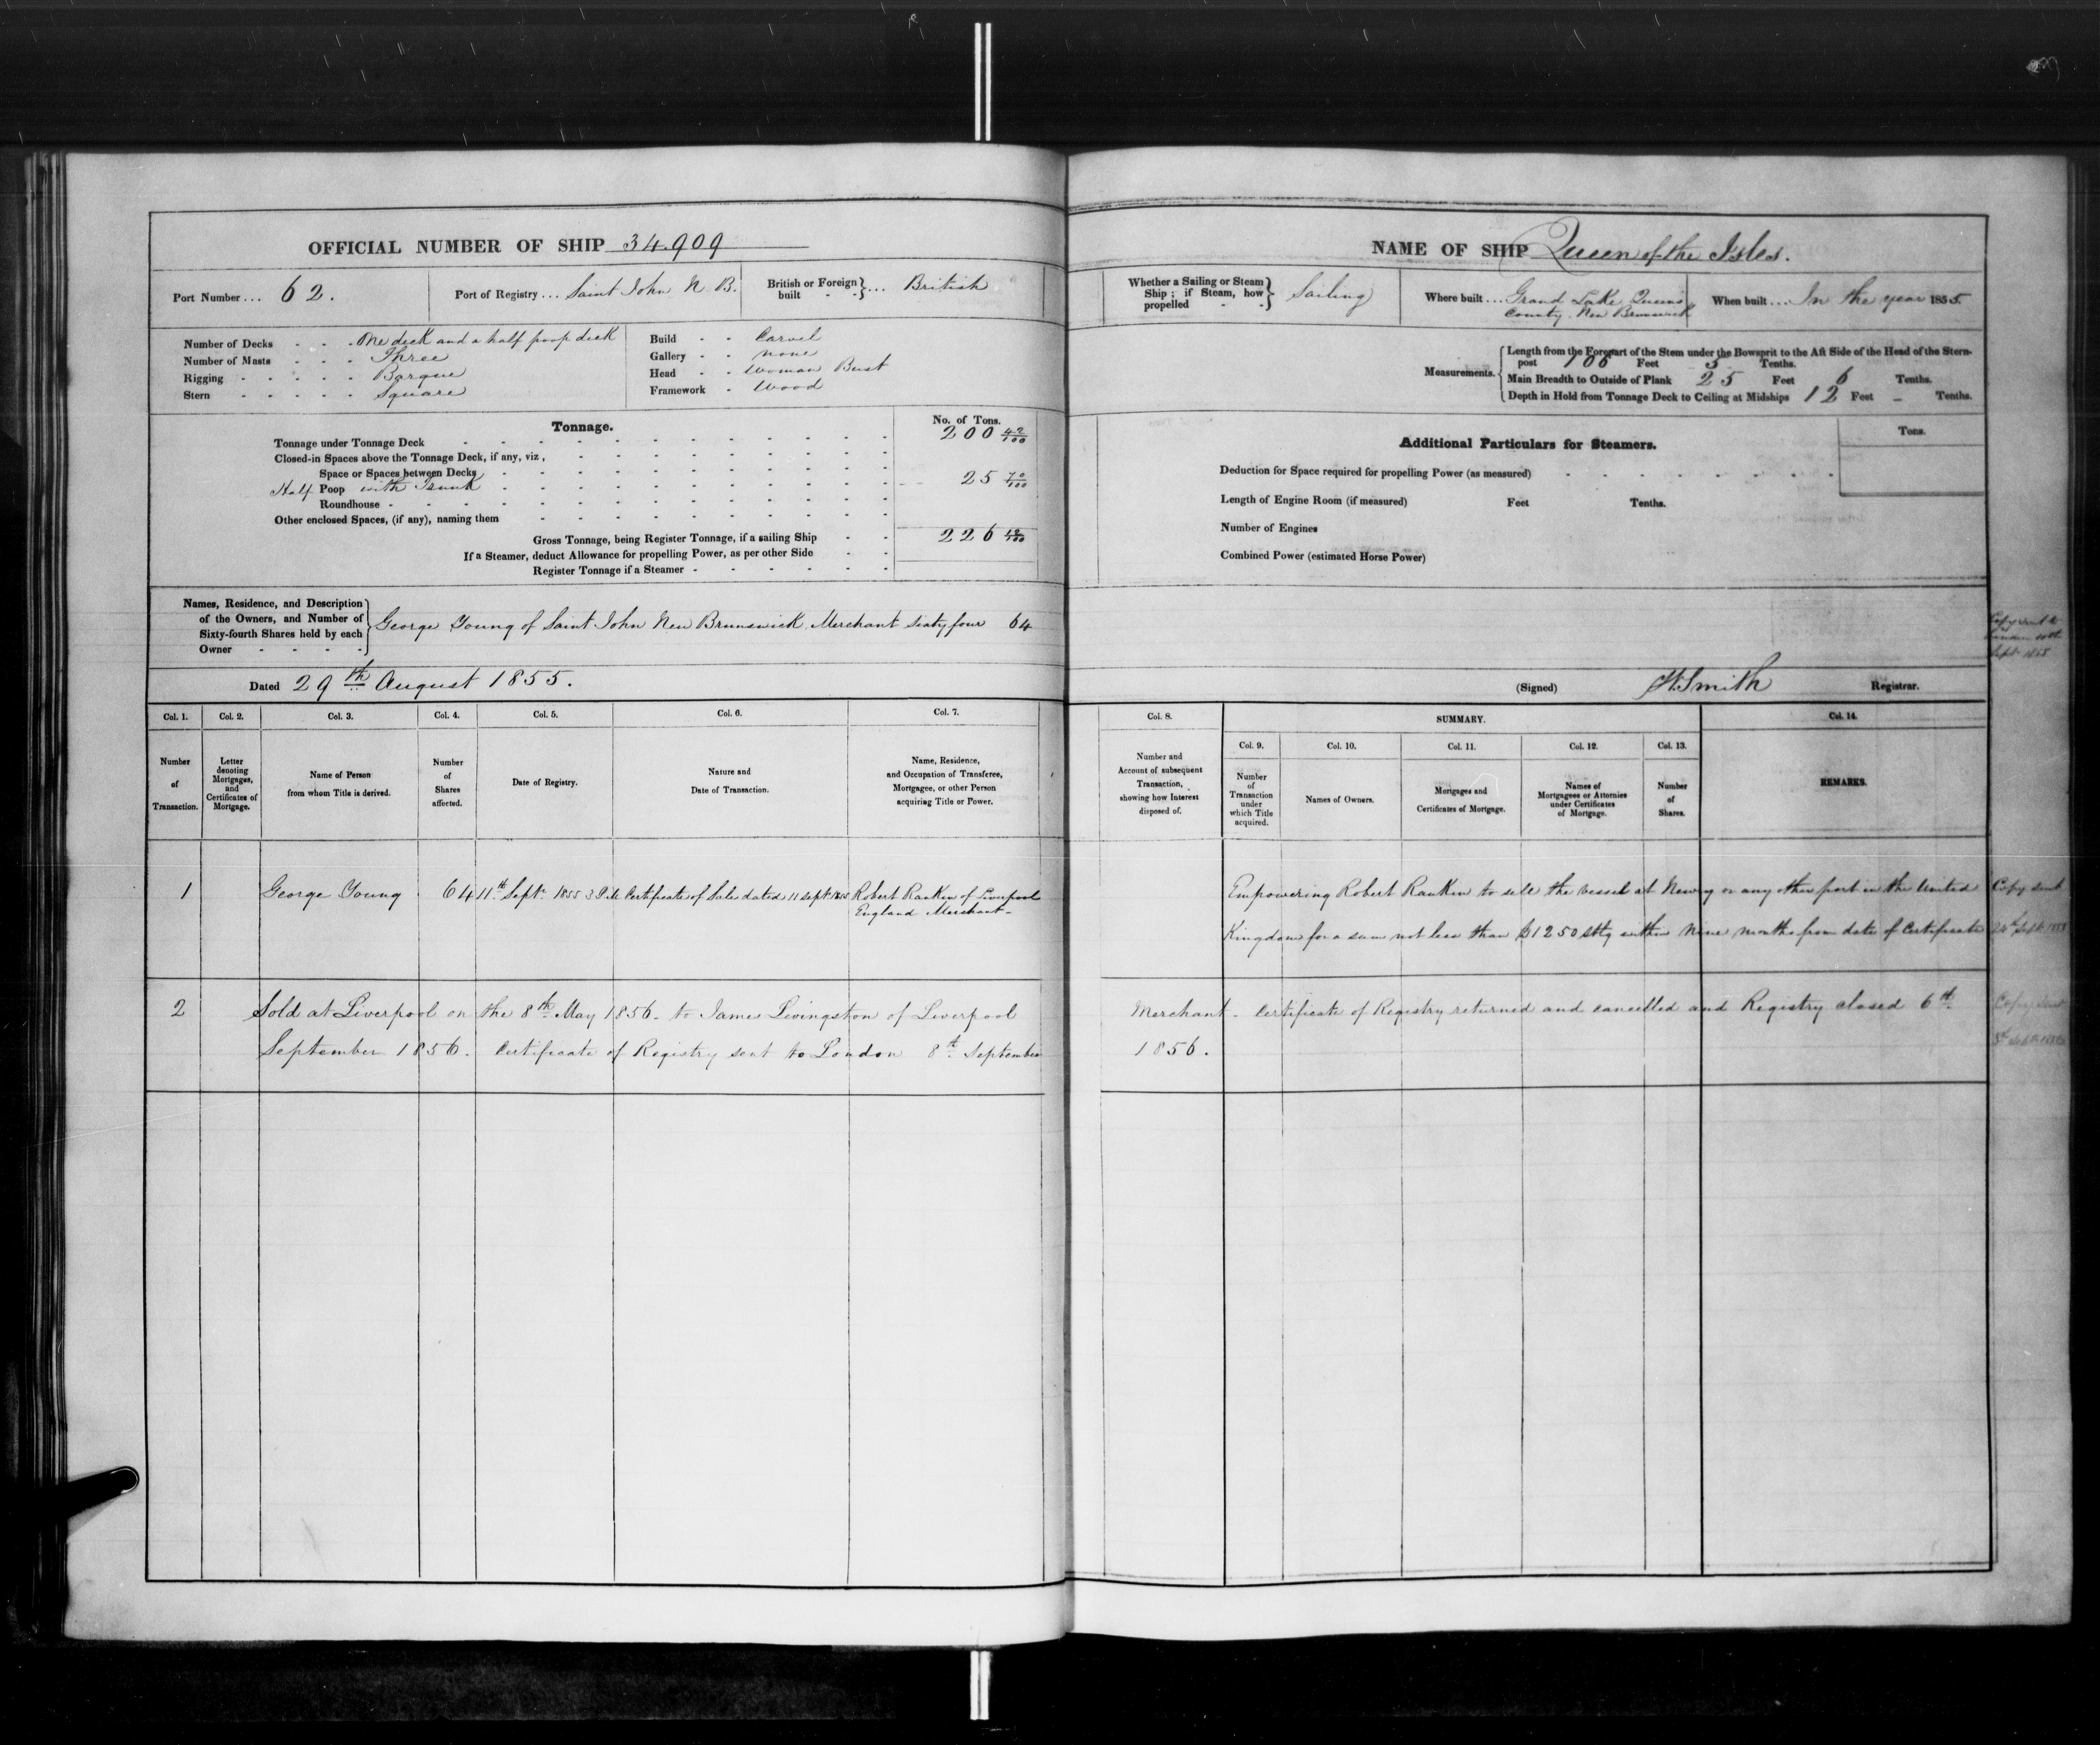 OFFICIAL NUMBER OF SHIP 34.909
Port Number ... 62.
Port of Registry ... Saint John N. B.
British or Foreign built - - } ... British
Number of Decks - - - One deck and a half poop deck
Number of Masts - - - Three
Rigging - - - - - Barque
Stern - - - - - Square
Build - - Carvel
Gallery - - none
Head - - Woman Bust
Framework - Wood
Tonnage.
No. of Tons.
Tonnage under Tonnage Deck 200 42/100
Closed-in Spaces above the Tonnage Deck, if any, viz,
Space or Spaces between Decks
Half Poop with Trunk 25 70/100
Roundhouse
Other enclosed Spaces, (if any), naming them
Gross Tonnage, being Register Tonnage, if a sailing Ship 226 12/100
If a Steamer, deduct Allowance for propelling Power, as per other Side
Register Tonnage if a Steamer
Names, Residence, and Description
of the Owners, and Number of
Sixty-fourth Shares held by each
Owner - - - -
George Young of Saint John New Brunswick Merchant Sixty four 64
Dated 29th August 1855.
Col. 1. Col. 2. Col. 3. Col. 4. Col. 5. Col. 6. Col. 7.
Number of Transaction.
Letter denoting Mortgages, and Certificates of Mortgage.
Name of Person from whom Title is derived.
Number of Shares affected.
Date of Registry.
Nature and Date of Transaction.
Name, Residence, and Occupation of Transferee, Mortgagee, or other Person acquiring Title or Power.
1 George Young 64 11th Septr 1855 Certificate of Sale dated 11 Sept 1855 Robert Rankin of Liverpool
England Merchant -
2 Sold at Liverpool on the 8th May 1856 - to James Livingston of Liverpool
September 1856. Certificate of Registry sent to London 8th September
NAME OF SHIP Queen of the Isles.
Whether a Sailing or Steam Ship; if Steam, how propelled - - } Sailing
Where built ... Grand Lake Queens
County. New Brunswick
When built ... In the year 1855.
Measurements.
Length from the Forepart of the Stem under the Bowsprit to the Aft Side of the Head of the Stern-
post 106 Feet 5 Tenths.
Main Breadth to Outside of Plank 25 Feet 6 Tenths.
Depth in Hold from Tonnage Deck to Ceiling at Midships 12 Feet - Tenths.
Additional Particulars for Steamers.
Tons.
Deduction for Space required for propelling Power (as measured)
Length of Engine Room (if measured) Feet Tenths.
Number of Engines
Combined Power (estimated Horse Power)
Copy sent to
London 10th
Sept 1855
(Signed) W. Smith Registrar.
Col. 8. SUMMARY. Col. 14.
Col. 9. Col. 10. Col. 11. Col. 12. Col. 13.
Number and Account of subsequent Transaction, showing how Interest disposed of.
Number of Transaction under which Title acquired.
Names of Owners.
Mortgages and Certificates of Mortgage.
Names of Mortgagees or Attornies under Certificates of Mortgage.
Number of Shares.
REMARKS.
Empowering Robert Rankin to sell the vessel at Newry or any other port in the United
Kingdom for a sum not less than £1250 sttg within Nine months from date of Certificate
Copy sent
Sept 1855
Merchant - Certificate of Registry returned and cancelled and Registry closed 6th
1856.
Copy sent